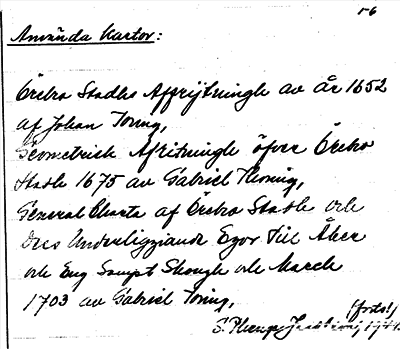 56
Använda Kartor:
Örebro Stadhs Affrijtningh av år 1652
af Johan Toring,
Geometrisk Afritningh öfver Örebro
Stadh 1675 av Gabriel Thoring,
General Charta af Örebro Stadh och
Dess Underliggiande Egor Till Åker
och Eng Sampt Skough och March
1703 av Gabriel Toring,
(forts!)
S.